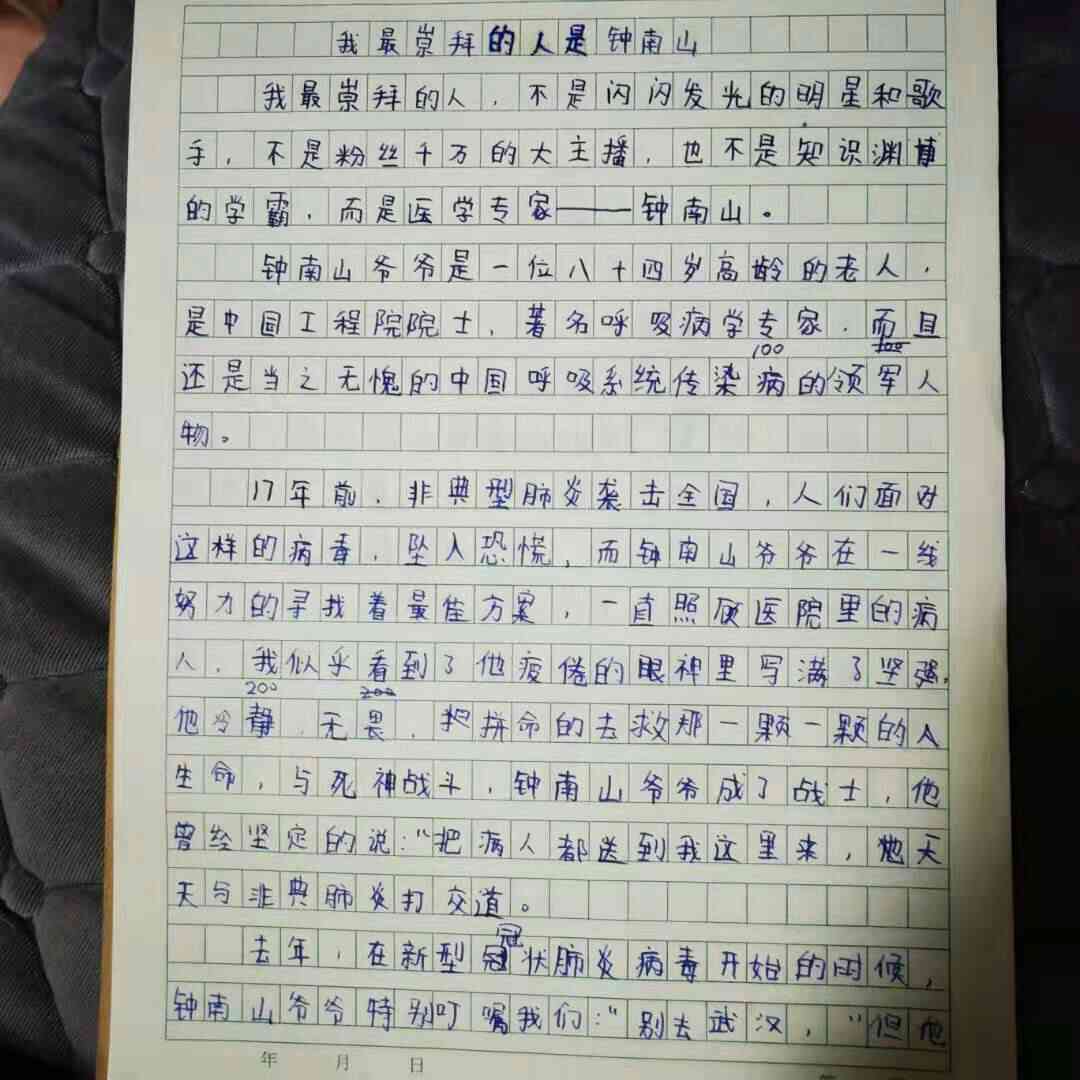 我最崇拜的人是钟南山
我最崇拜的人，不是闪闪发光的明星和歌
手，不是粉丝千万的大主播，也不是知识渊博
的学霸，而是医学专家——钟南山。
钟南山爷爷是一位八十四岁高龄的老人，
是中国工程院院士，著名呼吸病学专家，而且
100
还是当之无愧的中国呼吸系统传染病的领军人
物。
17年前，非典型肺炎袭击全国，人们面对
这样的病毒，坠入恐慌，而钟南山爷爷在一线
努力的寻找着最佳方案，一直照顾医院里的病
人，我似乎看到了他疲倦的眼神里写满了坚强。
200
他冷静，无畏，把拼命的去救那一颗一颗的人
生命，与死神战斗，钟南山爷爷成了战士，他
曾经坚定的说：“把病人都送到我这里来，他天
天与非典肺炎打交道。
去年，在新型冠状肺炎病毒开始的时候，
钟南山爷爷特别叮嘱我们：“别去武汉，”但他
年 月 日